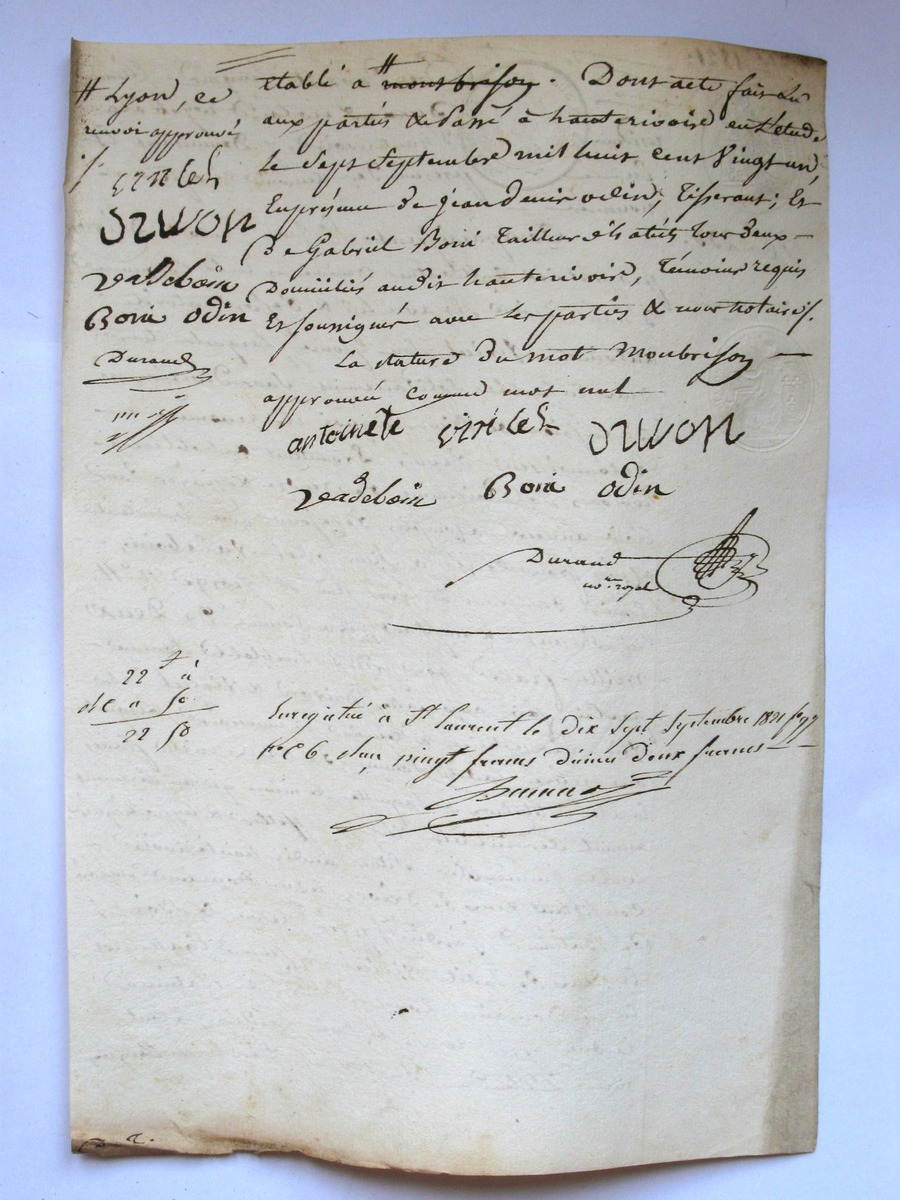 # Lyon, ce
renvoi approuvé
Vadeboin
Boni Odin
Durand
établi à # montbrison. Dont acte fait lu
aux parties & Passé à hauterivoire en L'étude
le Sept Septembre mil huit cent Vingt un,
En présence de jean denis odin, Tisserant; Et
De Gabriel Boni Tailleur d'habits tous deux
Domiciliés audit hauterivoire, témoins requis
Et soussignés avec les parties & nous notaire
La rature du mot Monbrison
approuvée comme mot nul
antoinete
Vadeboin Boni Odin
Durand
nore royal
22 f à
dle " 50
22 50
Enregistré à St Laurent le dix Sept Septembre 1821 fo 99
Vo C 6 vingt francs deux francs